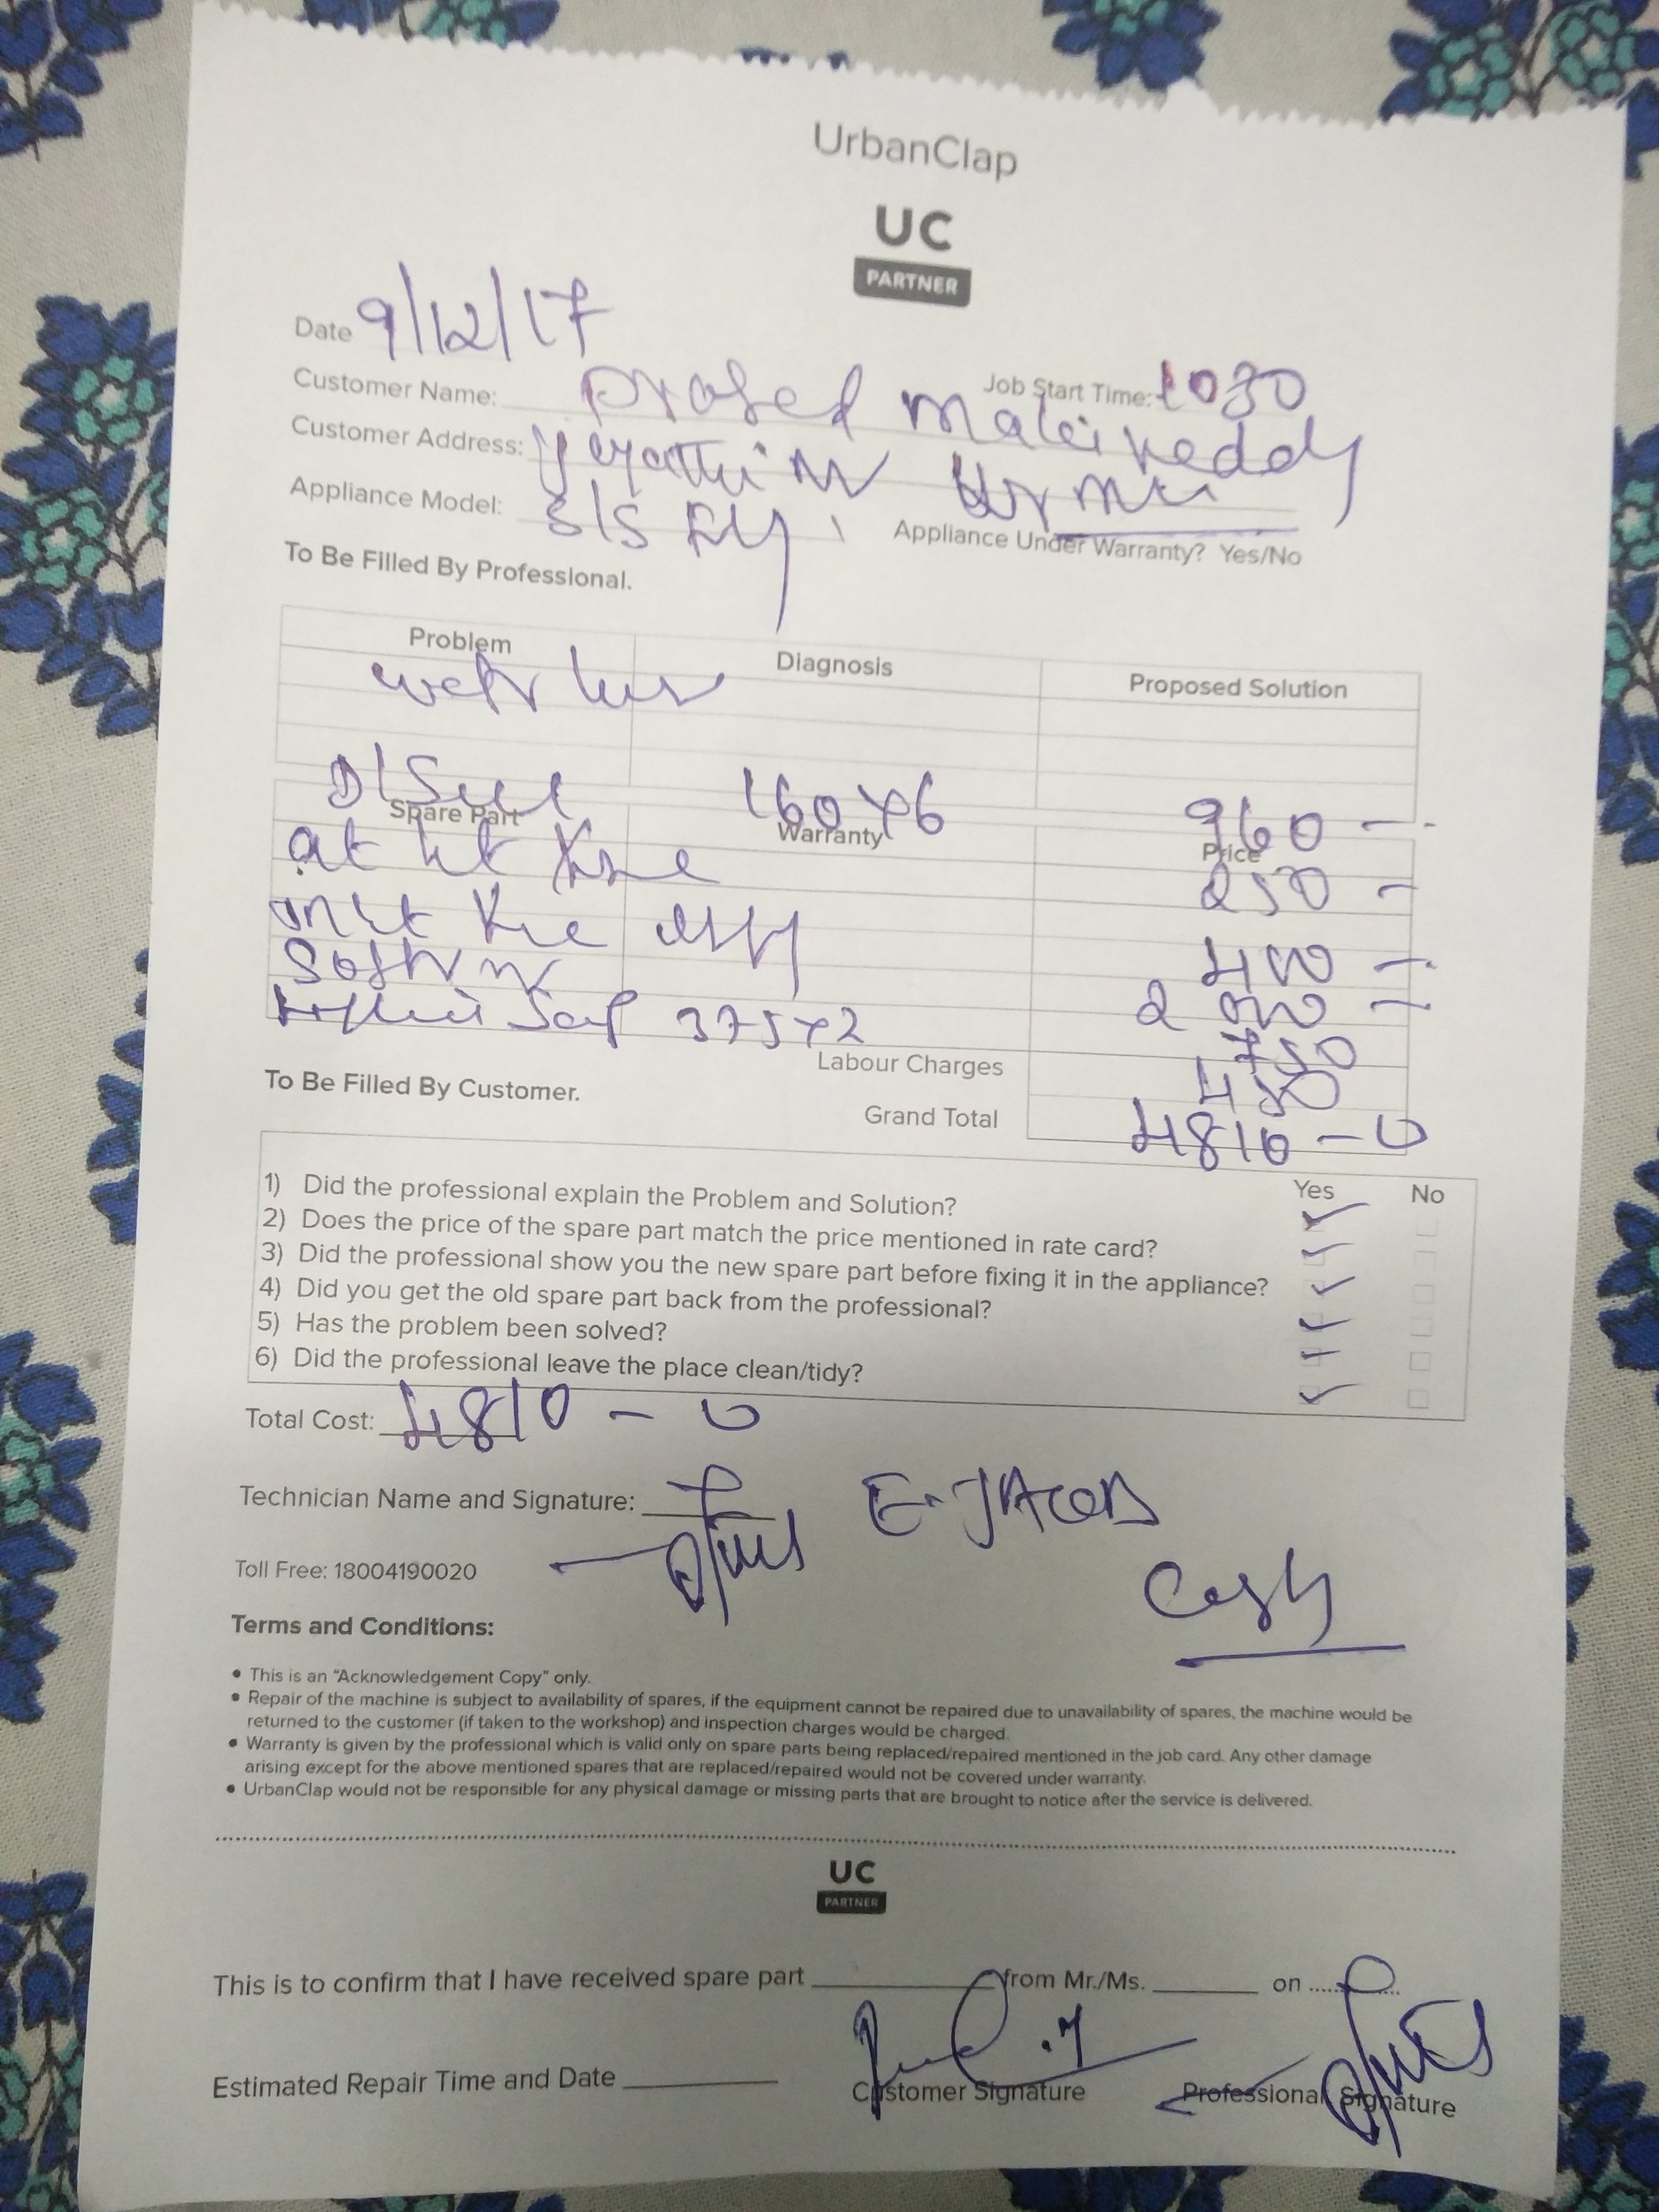 UrbanClap
UC
PARTNER
Date 9/12/17
Job Start Time: 1030
Customer Name: Malei Reddy
Customer Address:
Appliance Model:
Appliance Under Warranty? Yes/No
To Be Filled By Professional.
Problem Diagnosis Proposed Solution
160x6 960 -
Spare Part Warranty Price
250 -
400 -
2000 -
375x2 750
Labour Charges 450
To Be Filled By Customer.
Grand Total 4810 - 0
Yes No
1) Did the professional explain the Problem and Solution?
2) Does the price of the spare part match the price mentioned in rate card?
3) Did the professional show you the new spare part before fixing it in the appliance?
4) Did you get the old spare part back from the professional?
5) Has the problem been solved?
6) Did the professional leave the place clean/tidy?
Total Cost: 4810 - 0
Technician Name and Signature: E. JACOB
Toll Free: 18004190020
Cash
Terms and Conditions:
• This is an “Acknowledgement Copy” only.
• Repair of the machine is subject to availability of spares, if the equipment cannot be repaired due to unavailability of spares, the machine would be
returned to the customer (if taken to the workshop) and inspection charges would be charged.
• Warranty is given by the professional which is valid only on spare parts being replaced/repaired mentioned in the job card. Any other damage
arising except for the above mentioned spares that are replaced/repaired would not be covered under warranty.
• UrbanClap would not be responsible for any physical damage or missing parts that are brought to notice after the service is delivered.
UC
PARTNER
This is to confirm that I have received spare part from Mr./Ms. on
Estimated Repair Time and Date
Customer Signature
Professional Signature